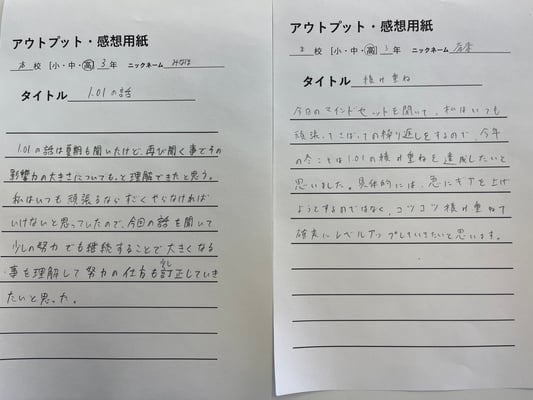 アウトプット・感想用紙
本校 [小・中・高] 3年 ニックネーム みなほ
タイトル 1.01の話
1.01の話は夏期も聞いたけど、再び聞く事でその
影響力の大きさについてもっと理解できたと思う。
私はいつも頑張るならすごくやらなければ
いけないと思っていたので、今回の話を聞いて
少しの努力でも継続することで大きくなる
事を理解して努力の仕方も少し訂正していき
たいと思った。
アウトプット・感想用紙
本校 [小・中・高] 3年 ニックネーム
タイトル 積み重ね
今日のマインドセットを聞いて、私はいつも
頑張ってさぼっての繰り返しをするので、今年
の冬こそは1.01の積み重ねを達成したいと
思いました。具体的には、急にギアを上げ
ようとするのではなく、コツコツ積み重ねて
確実にレベルアップしていきたいと思います。